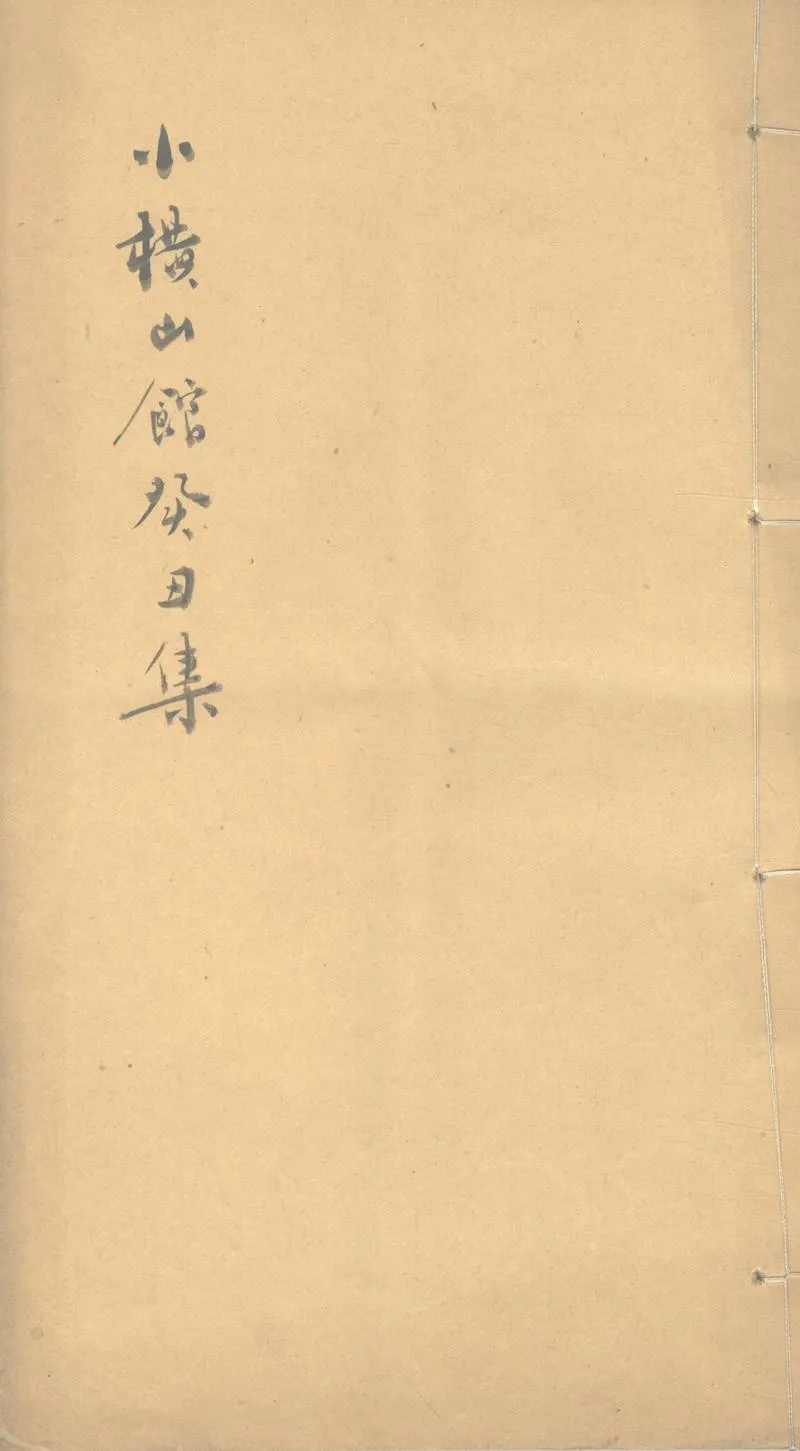 小橫山館癸丑集